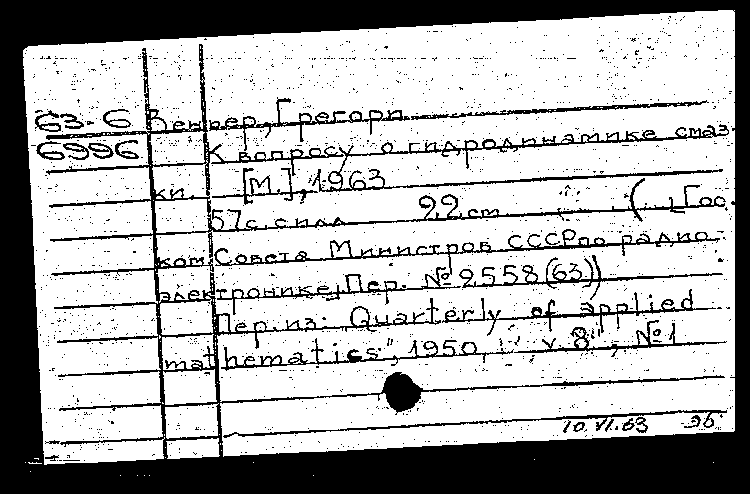 63-6 Веннер, Грегори
6996 К вопросу о гидродинамике смаз-
ки. [М.], 1963
57 с. с илл. 22 см. ( Гос.
ком. Совета Министров СССР по радио-
электронике, Пер. № 2558 (63))
Пер. из: Quarterly of applied
mathematics", 1950, v. 8", №1
10.VI.63